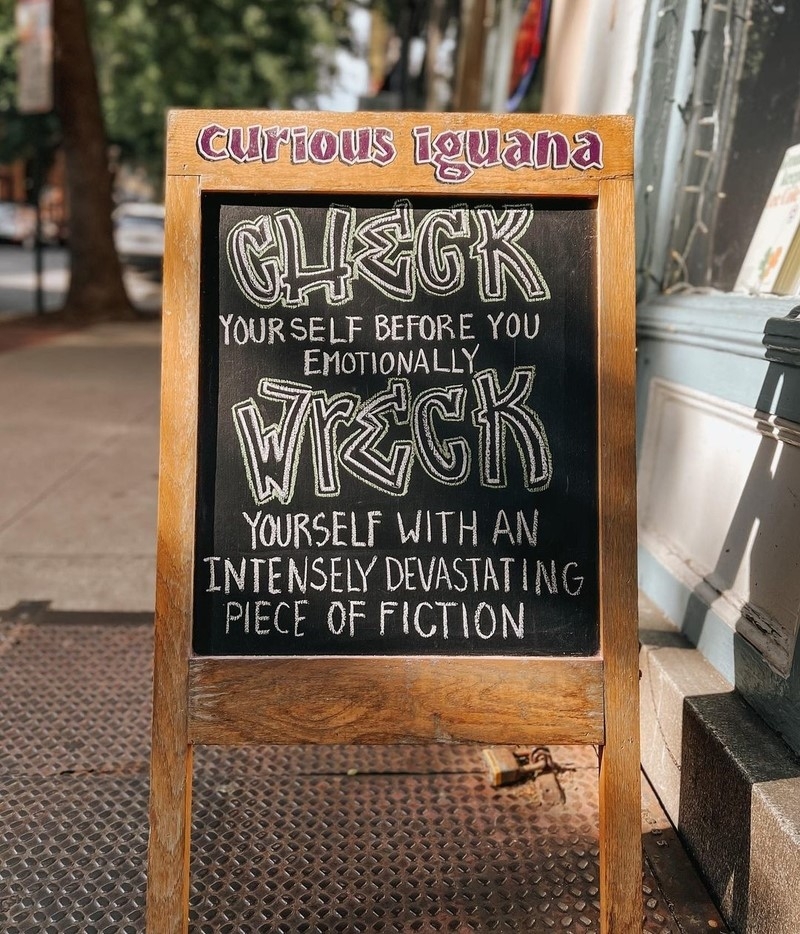 curious iguana
CHECK
YOURSELF BEFORE YOU
EMOTIONALLY
WrECK
YOURSELF WITH AN
INTENSELY DEVASTATING
PIECE OF FICTION